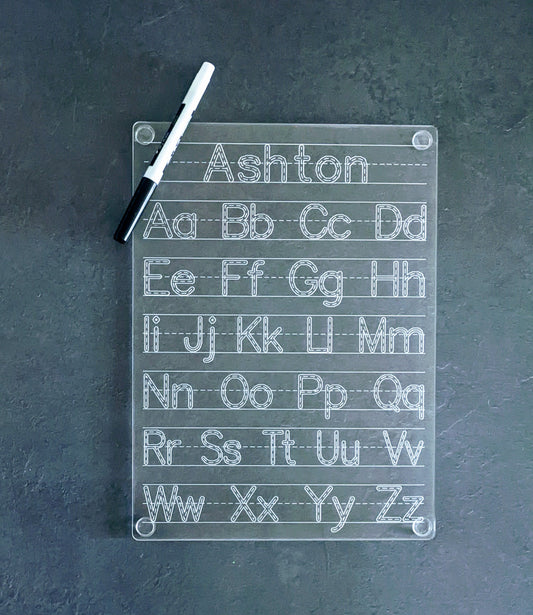 Ashton
Aa Bb Cc Dd
Ee Ff Gg Hh
Ii Jj Kk Ll Mm
Nn Oo Pp Qq
Rr Ss Tt Uu Vv
Ww Xx Yy Zz